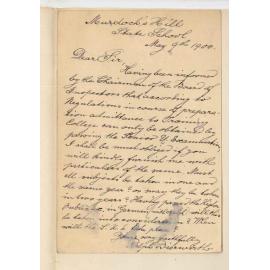 Murdock's Hill
State School,
May 9th 1900.
Dear Sir,
Having been informed
by the Chairman of the Board of
Inspectors that according to
Regulations in course of prepara-
tion admittance to Training
College can only be obtained by
passing the Examination
I shall be much obliged if you
will kindly furnish me with
particulars of the same. Must
all subjects be taken in one and
the same year? or may they be taken
in two years? Having passed the
in German will this
be taken into consideration? When
with the take place?
Yours very faithfully,